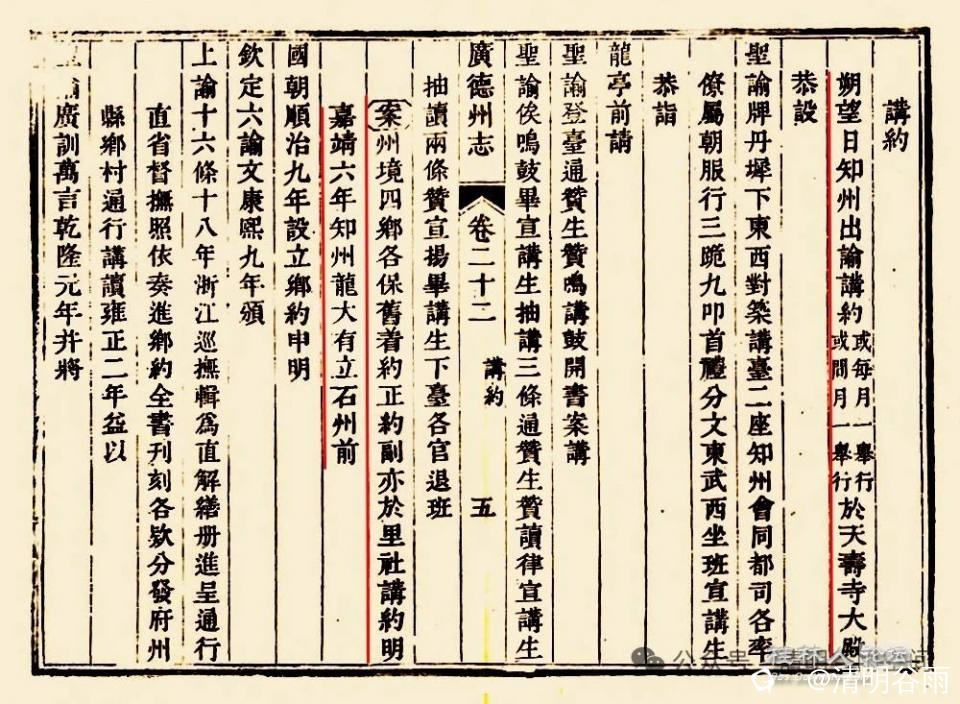 講約
朔望日知州出諭講約或每月一舉行或間月一舉行於天壽寺大殿
恭設
聖諭牌丹墀下東西對築講臺二座知州會同都司各率
僚屬朝服行三跪九叩首禮分文東武西坐班宣講生
恭詣
龍亭前請
聖諭登臺通贊生贊鳴講鼓開書案講
聖諭俟鳴鼓畢宣講生抽講三條通贊生贊讀律宣講生
廣德州志 卷二十二 講約 五
抽讀兩條贊宣揚畢講生下臺各官退班
案州境四鄉各保舊着約正約副亦於里社講約明
嘉靖六年知州龍大有立石州前
國朝順治九年設立鄉約申明
欽定六諭文康熙九年頒
上諭十六條十八年浙江巡撫輯為直解繕册進呈通行
直省督撫照依奏進鄉約全書刊刻各欵分發府州
縣鄉村通行講讀雍正二年益以
諭廣訓萬言乾隆元年并將
公众号
@清明谷雨